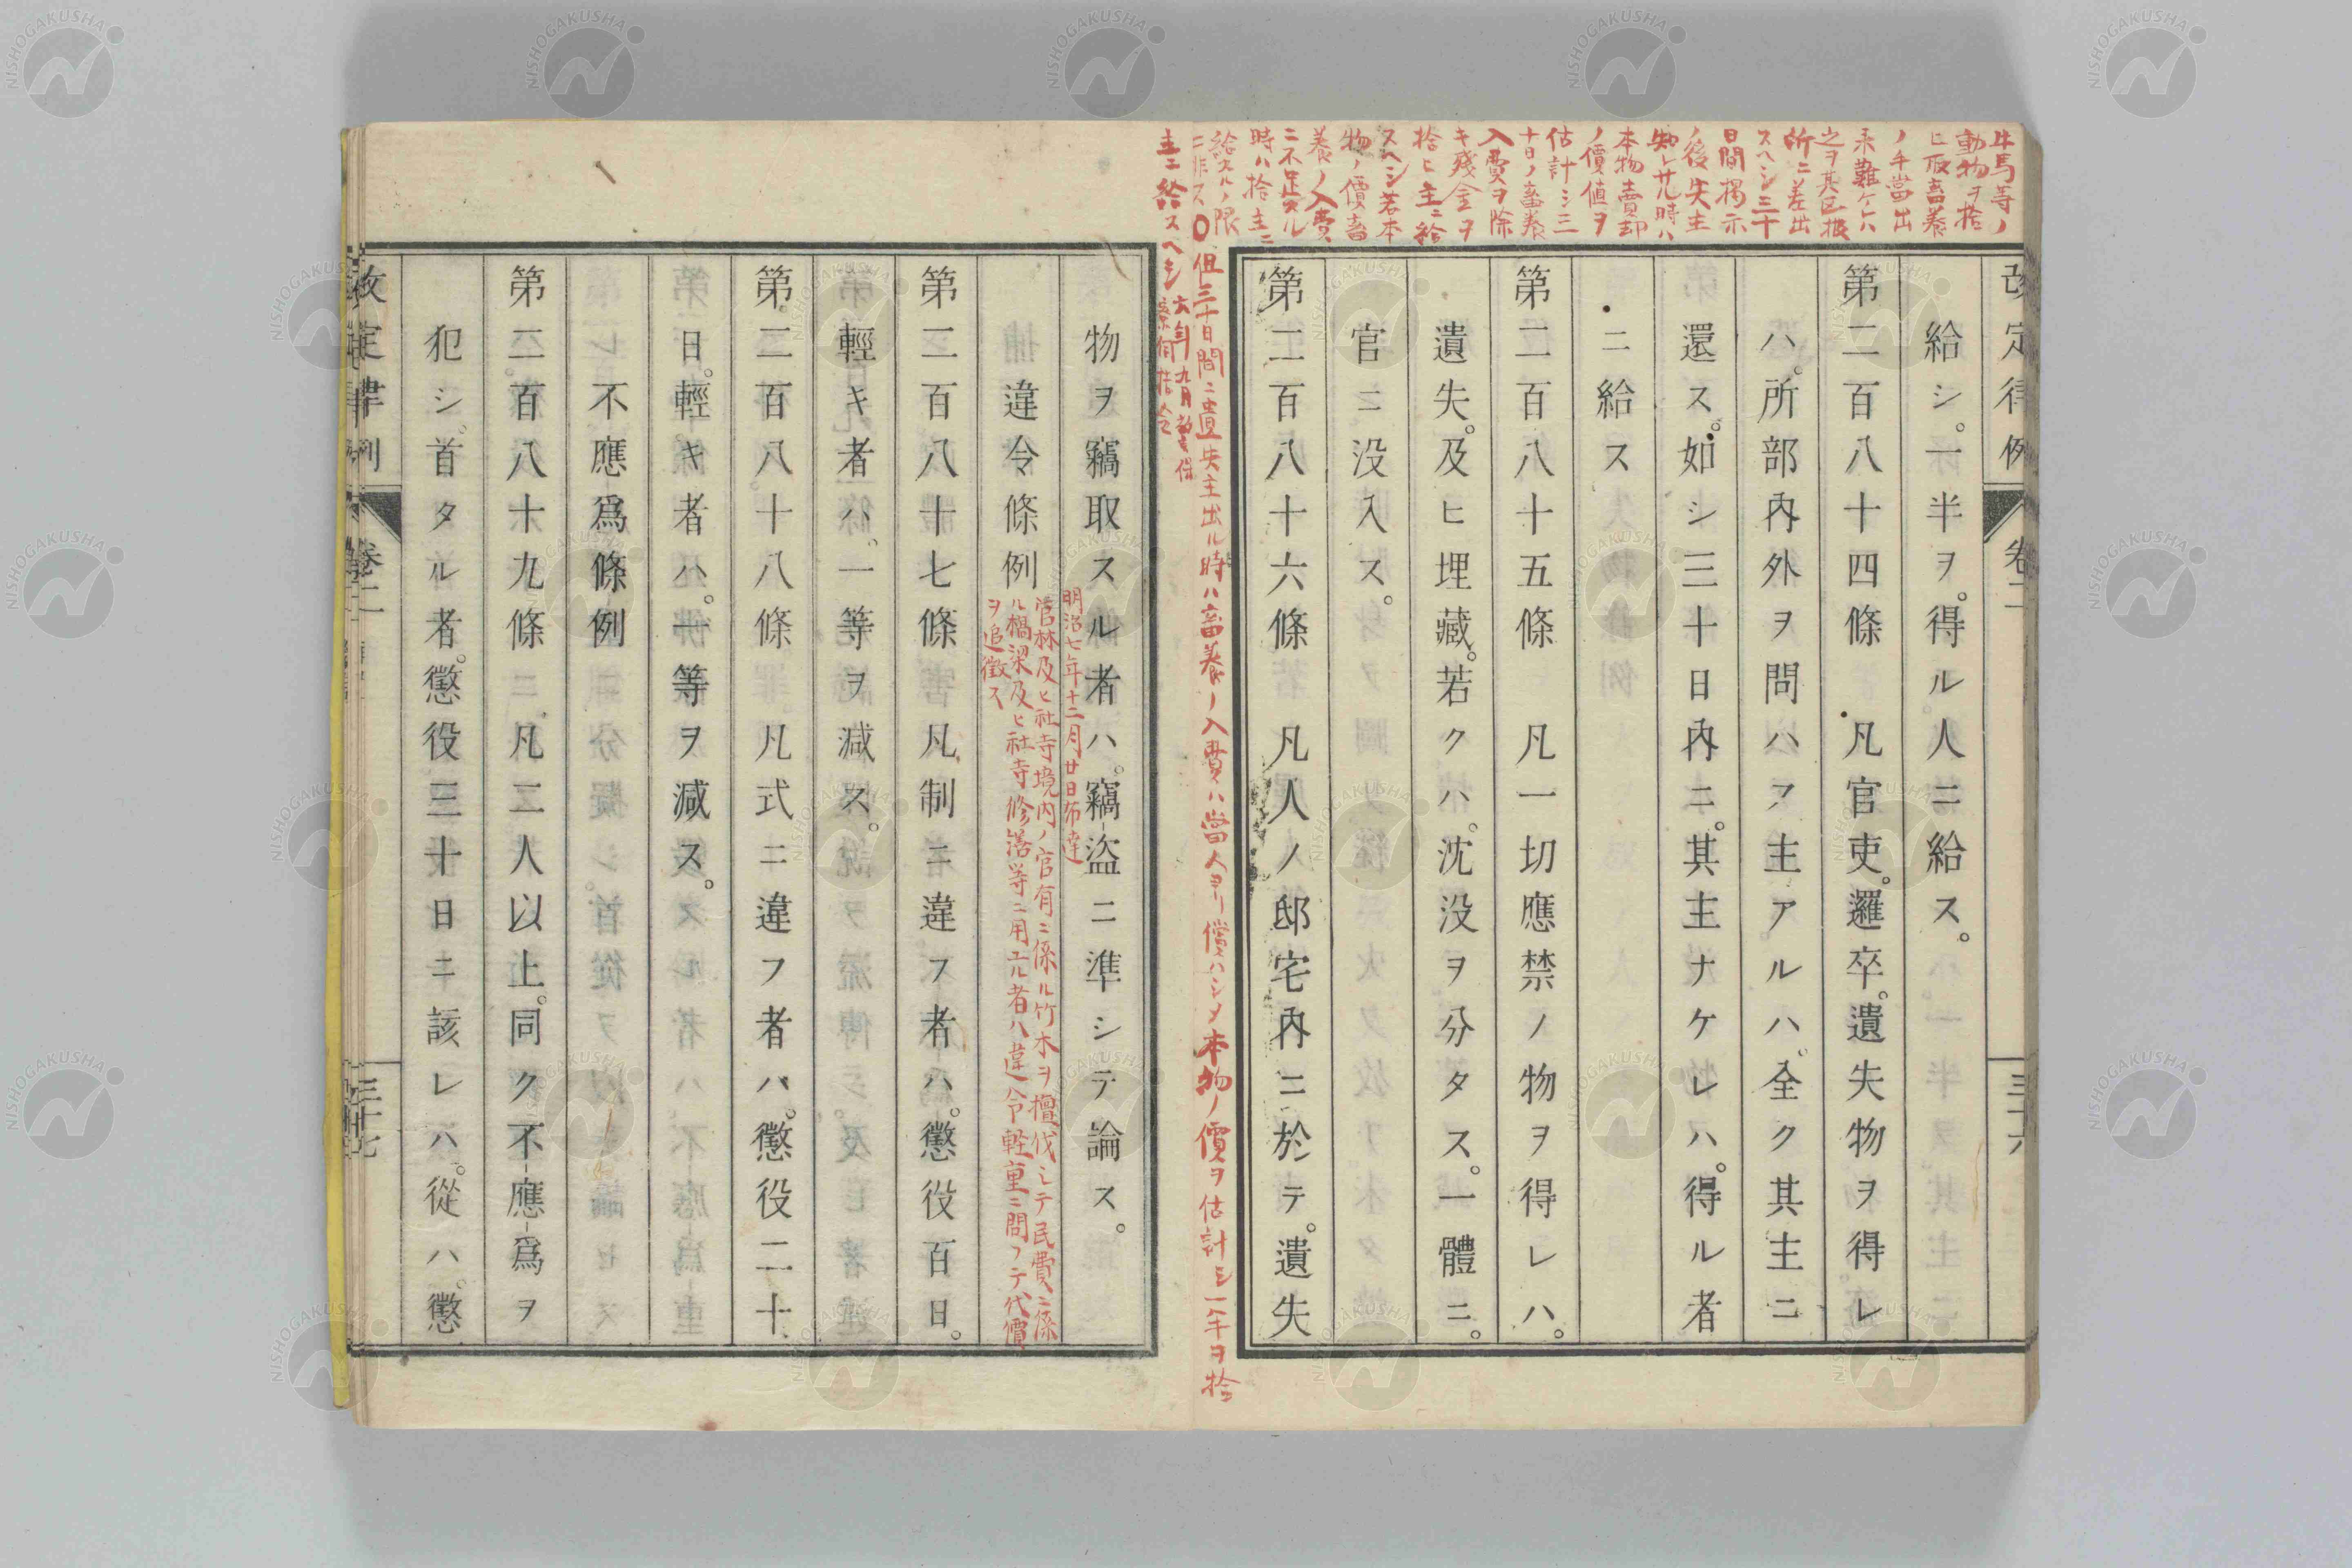 改定律例
卷二
三十六
給シ。一半ヲ。得ル人ニ給ス。
第二百八十四條 凡官吏。邏卒。遺失物ヲ得レ
ハ。所部內外ヲ問ハス主アルハ。全ク其主ニ
還ス。如シ三十日內ニ。其主ナケレハ。得ル者
ニ給ス
第二百八十五條 凡一切應禁ノ物ヲ得レハ。
遺失。及ヒ埋藏。若クハ。沈没ヲ分タス。一體ニ。
官ニ没入ス。
第二百八十六條 凡人ノ邸宅內ニ於テ。遺失
牛馬等ノ
動物ヲ拾
ヒ取畜養
ノ手當出
来難ケレハ
之ヲ其区扱
所ニ差出
スヘシ三十
日間掲示
ノ後失主
知レサル時ハ
本物賣却
ノ價値ヲ
估計シ三
十日ノ畜養
入費ヲ除
キ殘金ヲ
拾ヒ主ニ給
スヘシ若本
物ノ價畜
養ノ入費
ニ不足スル
時ハ拾主ニ
給スルノ限
ニ非ス〇但三十日間ニ遺失主出ル時ハ畜養ノ入費ハ當人ヨリ償ハシメ本物ノ價ヲ估計シ一半ヲ拾
主ニ給スヘシ六年九月
物ヲ竊取スル者ハ。竊盜ニ準シテ論ス。
違令條例
明治七年十二月廿日布達
官林及ヒ社寺境内ノ官有ニ係ル竹木ヲ擅伐シテ民費ニ係
ル橋梁及ヒ社寺修落等ニ用ユル者ハ違令輕重ニ問フテ代價
ヲ追徵ス
第二百八十七條 凡制ニ違フ者ハ。懲役百日。
輕キ者ハ。一等ヲ減ス。
第二百八十八條 凡式ニ違フ者ハ。懲役二十
日。輕キ者ハ。一等ヲ減ス。
不應爲條例
第二百八十九條 凡二人以上。同ク不應爲ヲ
犯シ。首タル者。懲役三十日ニ該レハ。從ハ。懲
改定律例
卷二
三十七